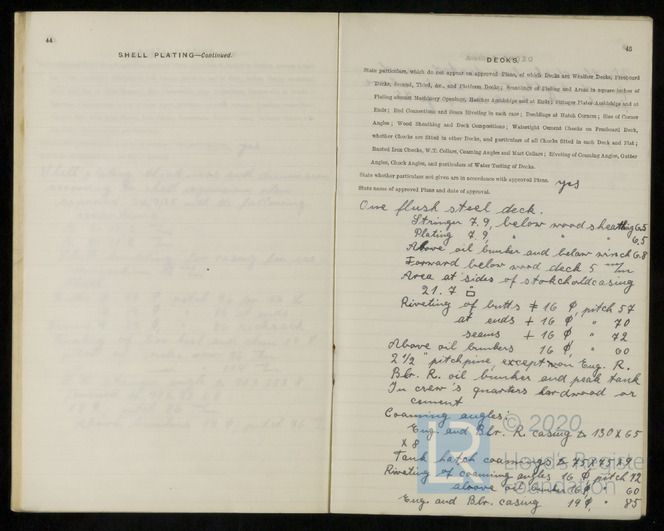 44
SHELL PLATING—Continued.
45
DECKS.
State particulars, which do not appear on approved Plans, of which Decks are Weather Decks, Freeboard
Decks, Second, Third, &c., and Platform Decks; Scantlings of Plating and Areas in square inches of
Plating abreast Machinery Openings, Hatches Amidships and at Ends; Stringer Plates Amidships and at
Ends; End Connections and Seam Riveting in each case; Doublings at Hatch Corners; Size of Corner
Angles; Wood Sheathing and Deck Compositions; Watertight Cement Chocks on Freeboard Deck,
whether Chocks are fitted in other Decks, and particulars of all Chocks fitted in each Deck and Flat;
Rusted Iron Chocks, W.T. Collars, Coaming Angles and Mast Collars; Riveting of Coaming Angles, Gutter
Angles, Chock Angles, and particulars of Water Testing of Decks.
State whether particulars not given are in accordance with approved Plans. yes
State name of approved Plans and date of approval.
One flush steel deck.
Stringer 7.9, below wood sheathing 6.5
Plating 7.9, " " " 6.5
Above oil bunker and below winch 6.8
Forward below wood deck 5 m/m
Area at sides of stokehold casing
21.7 □
Riveting of butts ‡ 16 ϕ, pitch 57
at ends + 16 ϕ " 70
seams + 16 ϕ " 72
Above oil bunkers 16 ϕ, " 60
2 1/2" pitchpine, except on Eng. R.
Blr. R. oil bunker and peak tank
In crew's quarters hardwood or
cement
Coaming angles:
Eng. and Blr. R. casing 130 x 65
x 8
Tank hatch coamings 75 x 75 x 9
Riveting of coaming angles 16 ϕ pitch 72
above oil bunker 16 ϕ " 60
Eng. and Blr. casing 19 ϕ, " 85
LR
© 2020
Lloyd's Register
Foundation